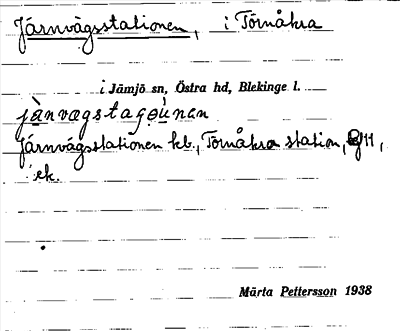 Järnvägsstationen, i Törnåkra
i Jämjö sn, Östra hd, Blekinge l.
jà̱nvægstagòunen
Järnvägsstationen kb., Törnåkra station, 911,
ek.
Märta Pettersson 1938